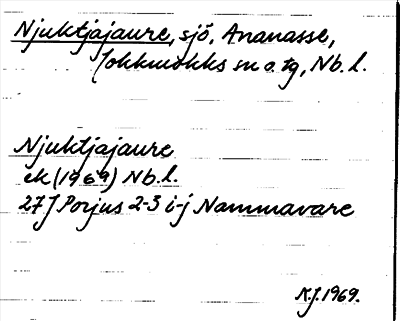 Njuktjajaure, sjö, Ananasse,
Jokkmokks sn o. tg, Nb. l.
Njuktjajaure
ek (1969) Nb. l.
27J Porjus 2-3 i-j Nammavare
K.J. 1969.